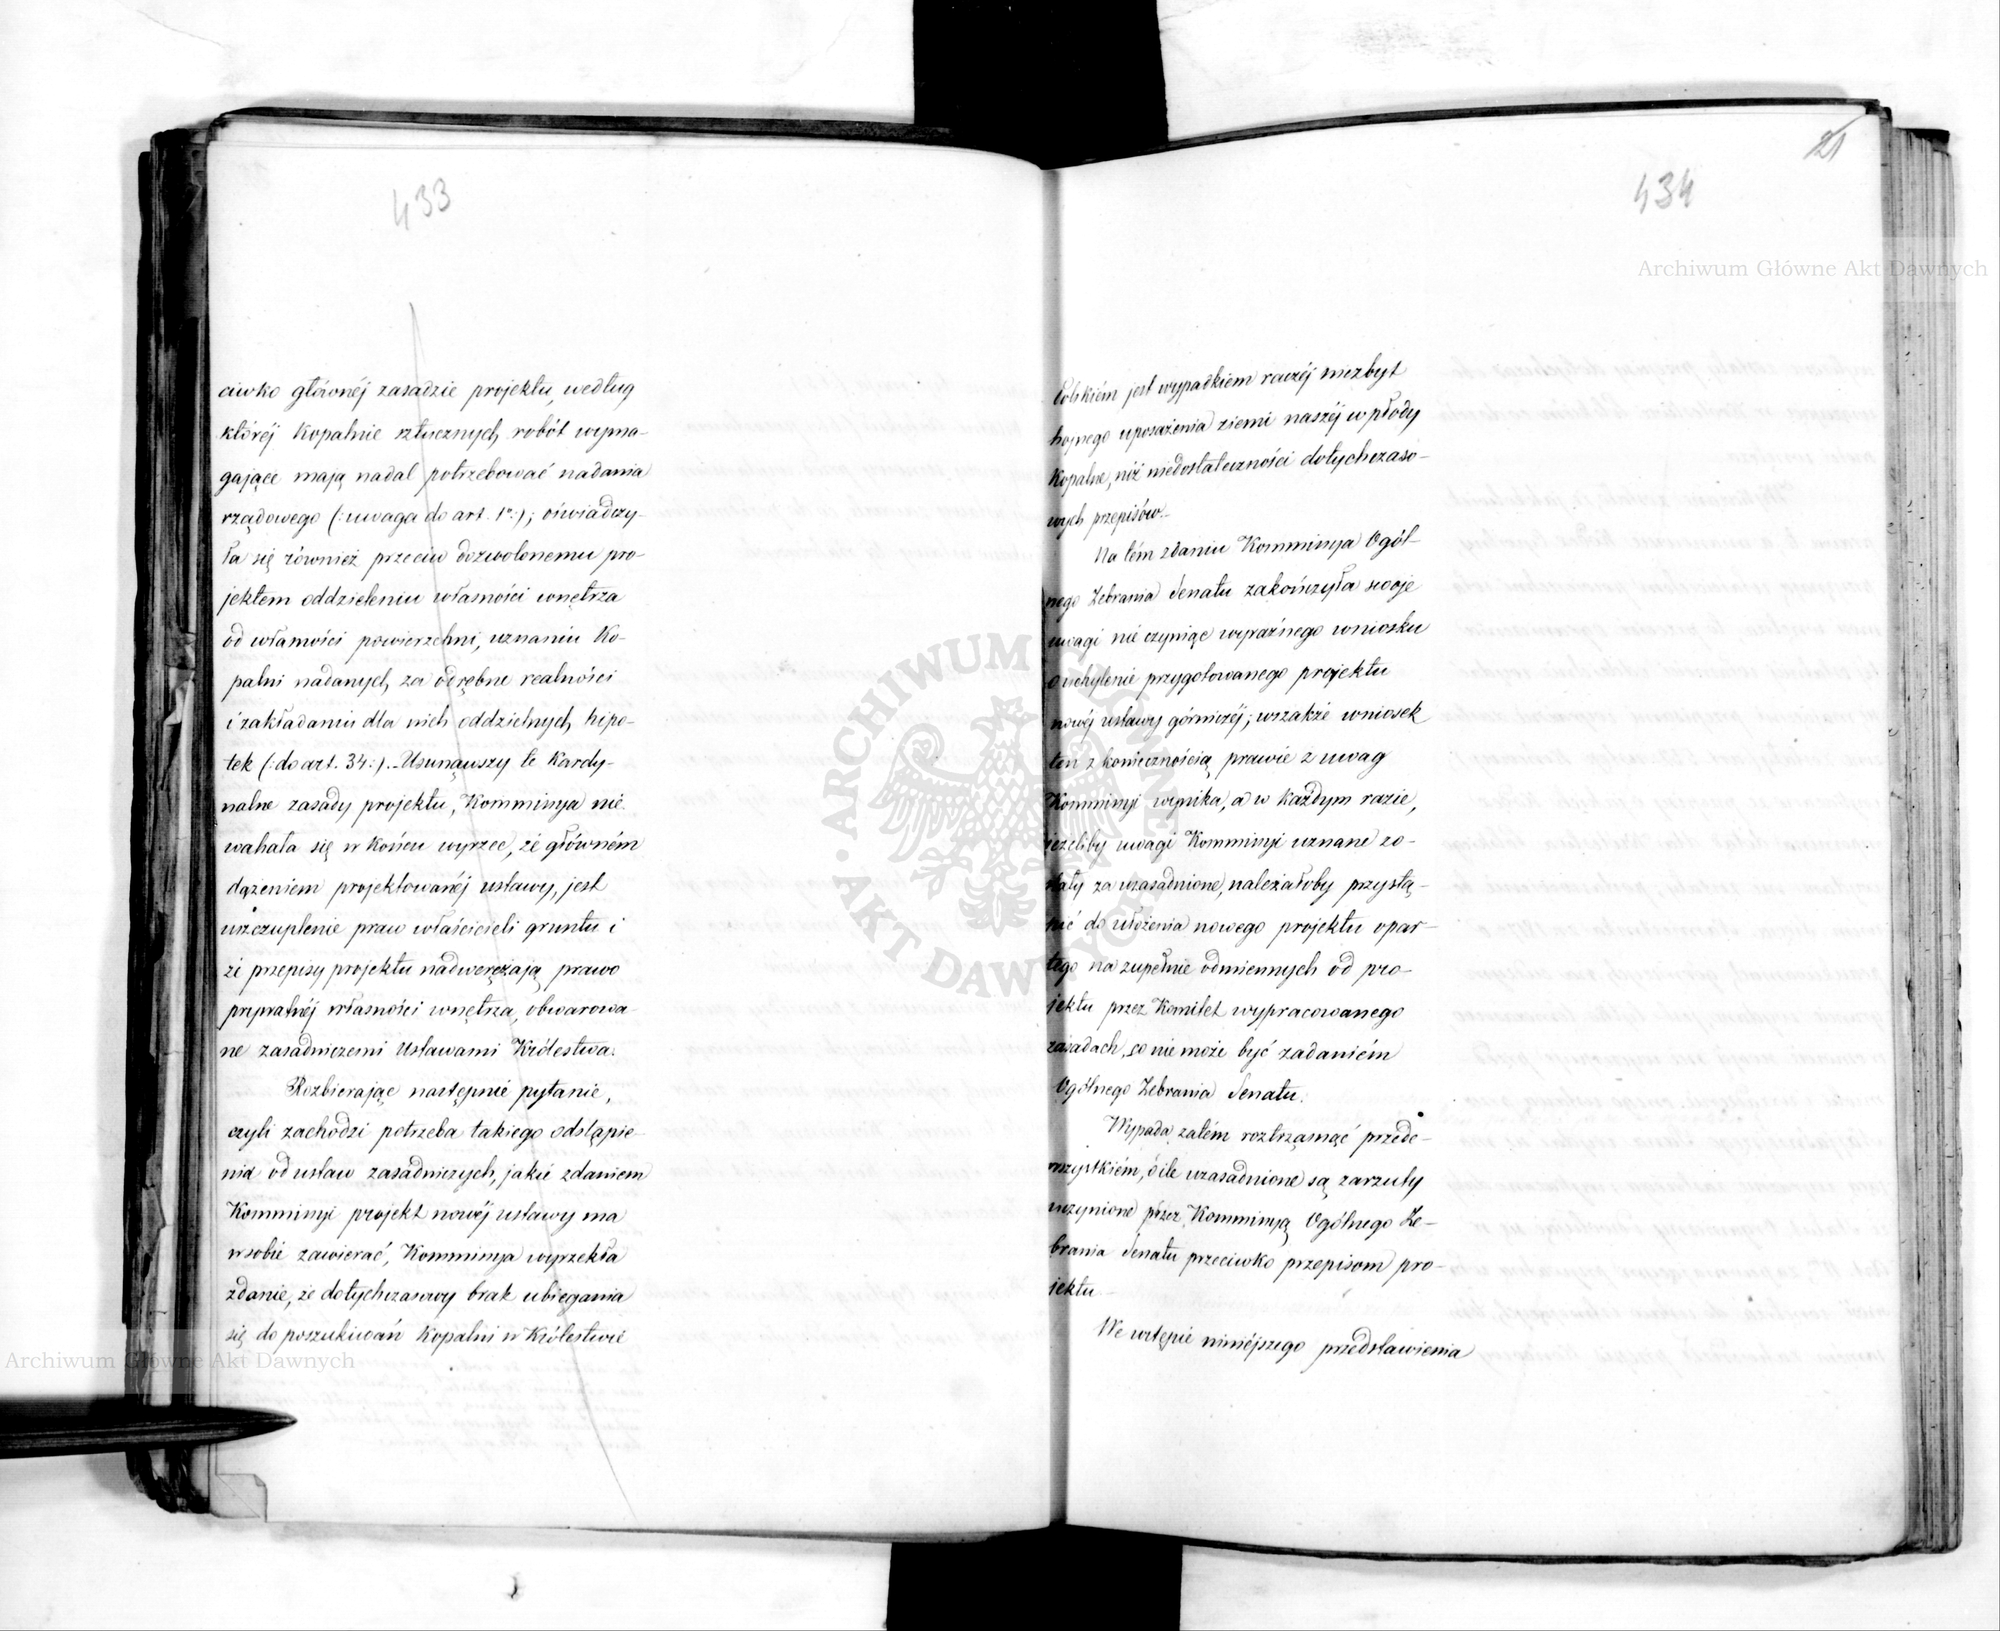 433
ciwko głównéj zasadzie projektu, według
któréj Kopalnie sztucznych robót wyma-
gające mają nadal potrzebować nadania
rządowego (: uwaga do art. 1º:); oświadczy-
ła się również przeciw dozwolonemu pro-
jektem oddzieleniu własności wnętrza
od własności powierzchni, uznaniu Ko-
palni nadanych, za odrębne realności
i zakładaniu dla nich oddzielnych hipo-
tek (: do art. 34:). Usunąwszy te Kardy-
nalne zasady projektu, Kommissya nie
wahała się w końcu wyrzec, że główném
dążeniem projektowanéj ustawy, jest
uszczuplenie praw właścicieli gruntu i
że przepisy projektu nadwerężają prawo
prywatnéj własności wnętrza, obwarowa-
ne zasadniczemi Ustawami Królestwa.
Rozbierając następnie pytanie,
czyli zachodzi potrzeba takiego odstąpie-
nia od ustaw zasadniczych, jakie zdaniem
Kommissyi projekt nowéj ustawy ma
w sobie zawierać, Kommissya wyrzekła
zdanie, że dotychczasowy brak ubiegania
się do poszukiwań Kopalni w Królestwie
21
434
Polskiém jest wypadkiem raczéj niezbyt
hojnego uposażenia ziemi naszéj w płody
Kopalne, niż niedostateczności dotychczaso-
wych przepisów.
Na tém zdaniu Kommissya Ogól-
nego Zebrania Senatu zakończyła swoje
uwagi nie czyniąc wyraźnego wniosku
o uchylenie przygotowanego projektu
nowéj ustawy górniczéj; wszakże wniosek
ten z koniecznością prawie z uwag
Kommissyi wynika, a w każdym razie,
jeżeliby uwagi Kommissyi uznane zo-
stały za uzasadnione, należałoby przystą-
pić do ułożenia nowego projektu opar-
tego na zupełnie odmiennych od pro-
jektu przez Komitet wypracowanego
zasadach, co nie może być zadaniém
Ogólnego Zebrania Senatu.
Wypada zatém roztrząsnąć przede-
wszystkiém, o ile uzasadnione są zarzuty
uczynione przez Kommissyą Ogólnego Ze-
brania Senatu przeciwko przepisom pro-
jektu.
We wstępie niniéjszego przedstawienia
Archiwum Główne Akt Dawnych
Archiwum Główne Akt Dawnych
ARCHIWUM GŁÓWNE AKT DAWNYCH